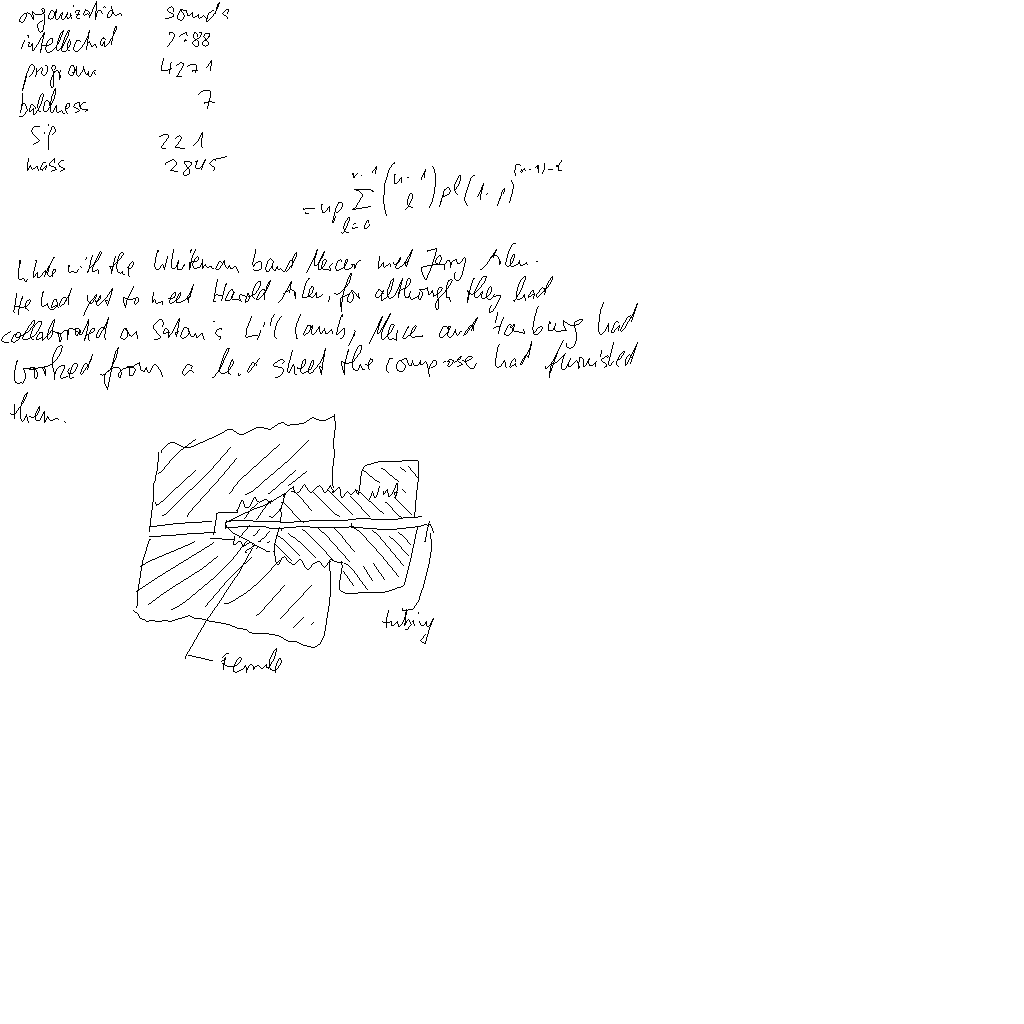 organization sounds
intellectual 2788
program 4271
baldness 7
sip 221
mass 2845
= np \sum_{l=0}^{n-1} \binom{n-1}{l} p^l (1-p)^{(n-1)-l}
While with the Whiteman band Mercer met Jerry Arlen.
He had yet to meet Harold Arlen, for although they had
collaborated on Satan's Li'l Lamb, Mercer and Harburg had
worked from a lead sheet the composer had furnished
them.
Nut
tubing
Ferrule